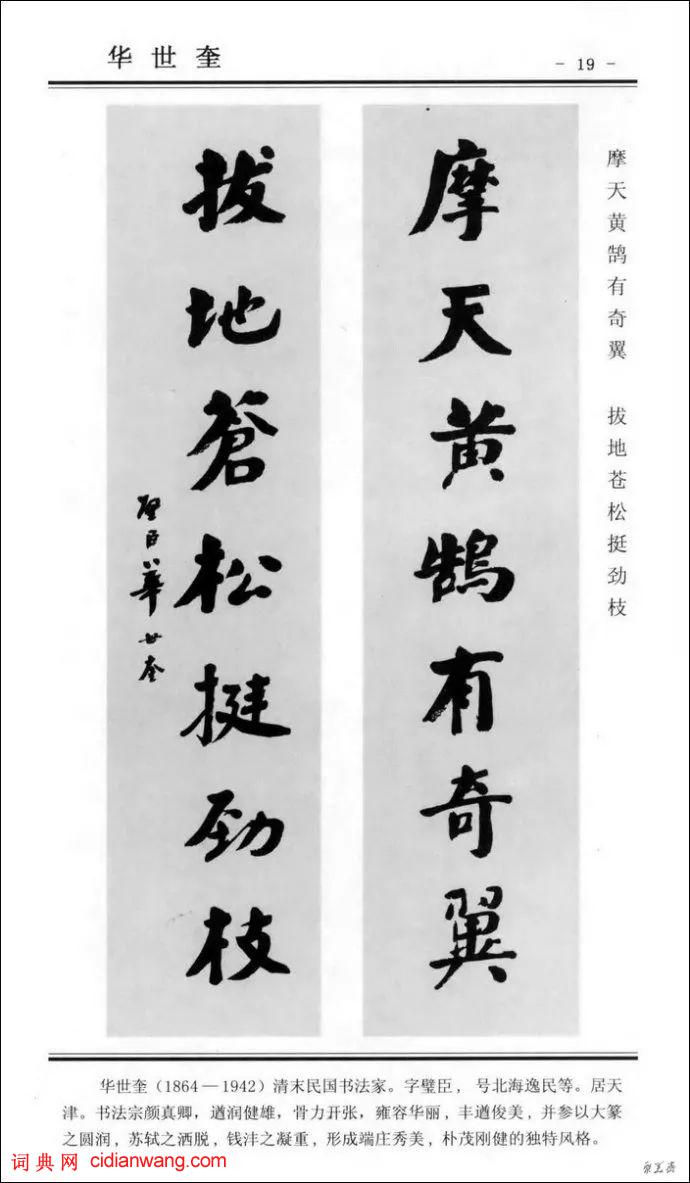 华世奎
- 19 -
摩天黄鹄有奇翼 拔地苍松挺劲枝
摩天黄鹄有奇翼
拔地蒼松挺劲枝
璧臣華世奎
华世奎(1864—1942)清末民国书法家。字璧臣,号北海逸民等。居天
津。书法宗颜真卿,遒润健雄,骨力开张,雍容华丽,丰遒俊美,并参以大篆
之圆润,苏轼之洒脱,钱沣之凝重,形成端庄秀美,朴茂刚健的独特风格。
词典网 cidianwang.com